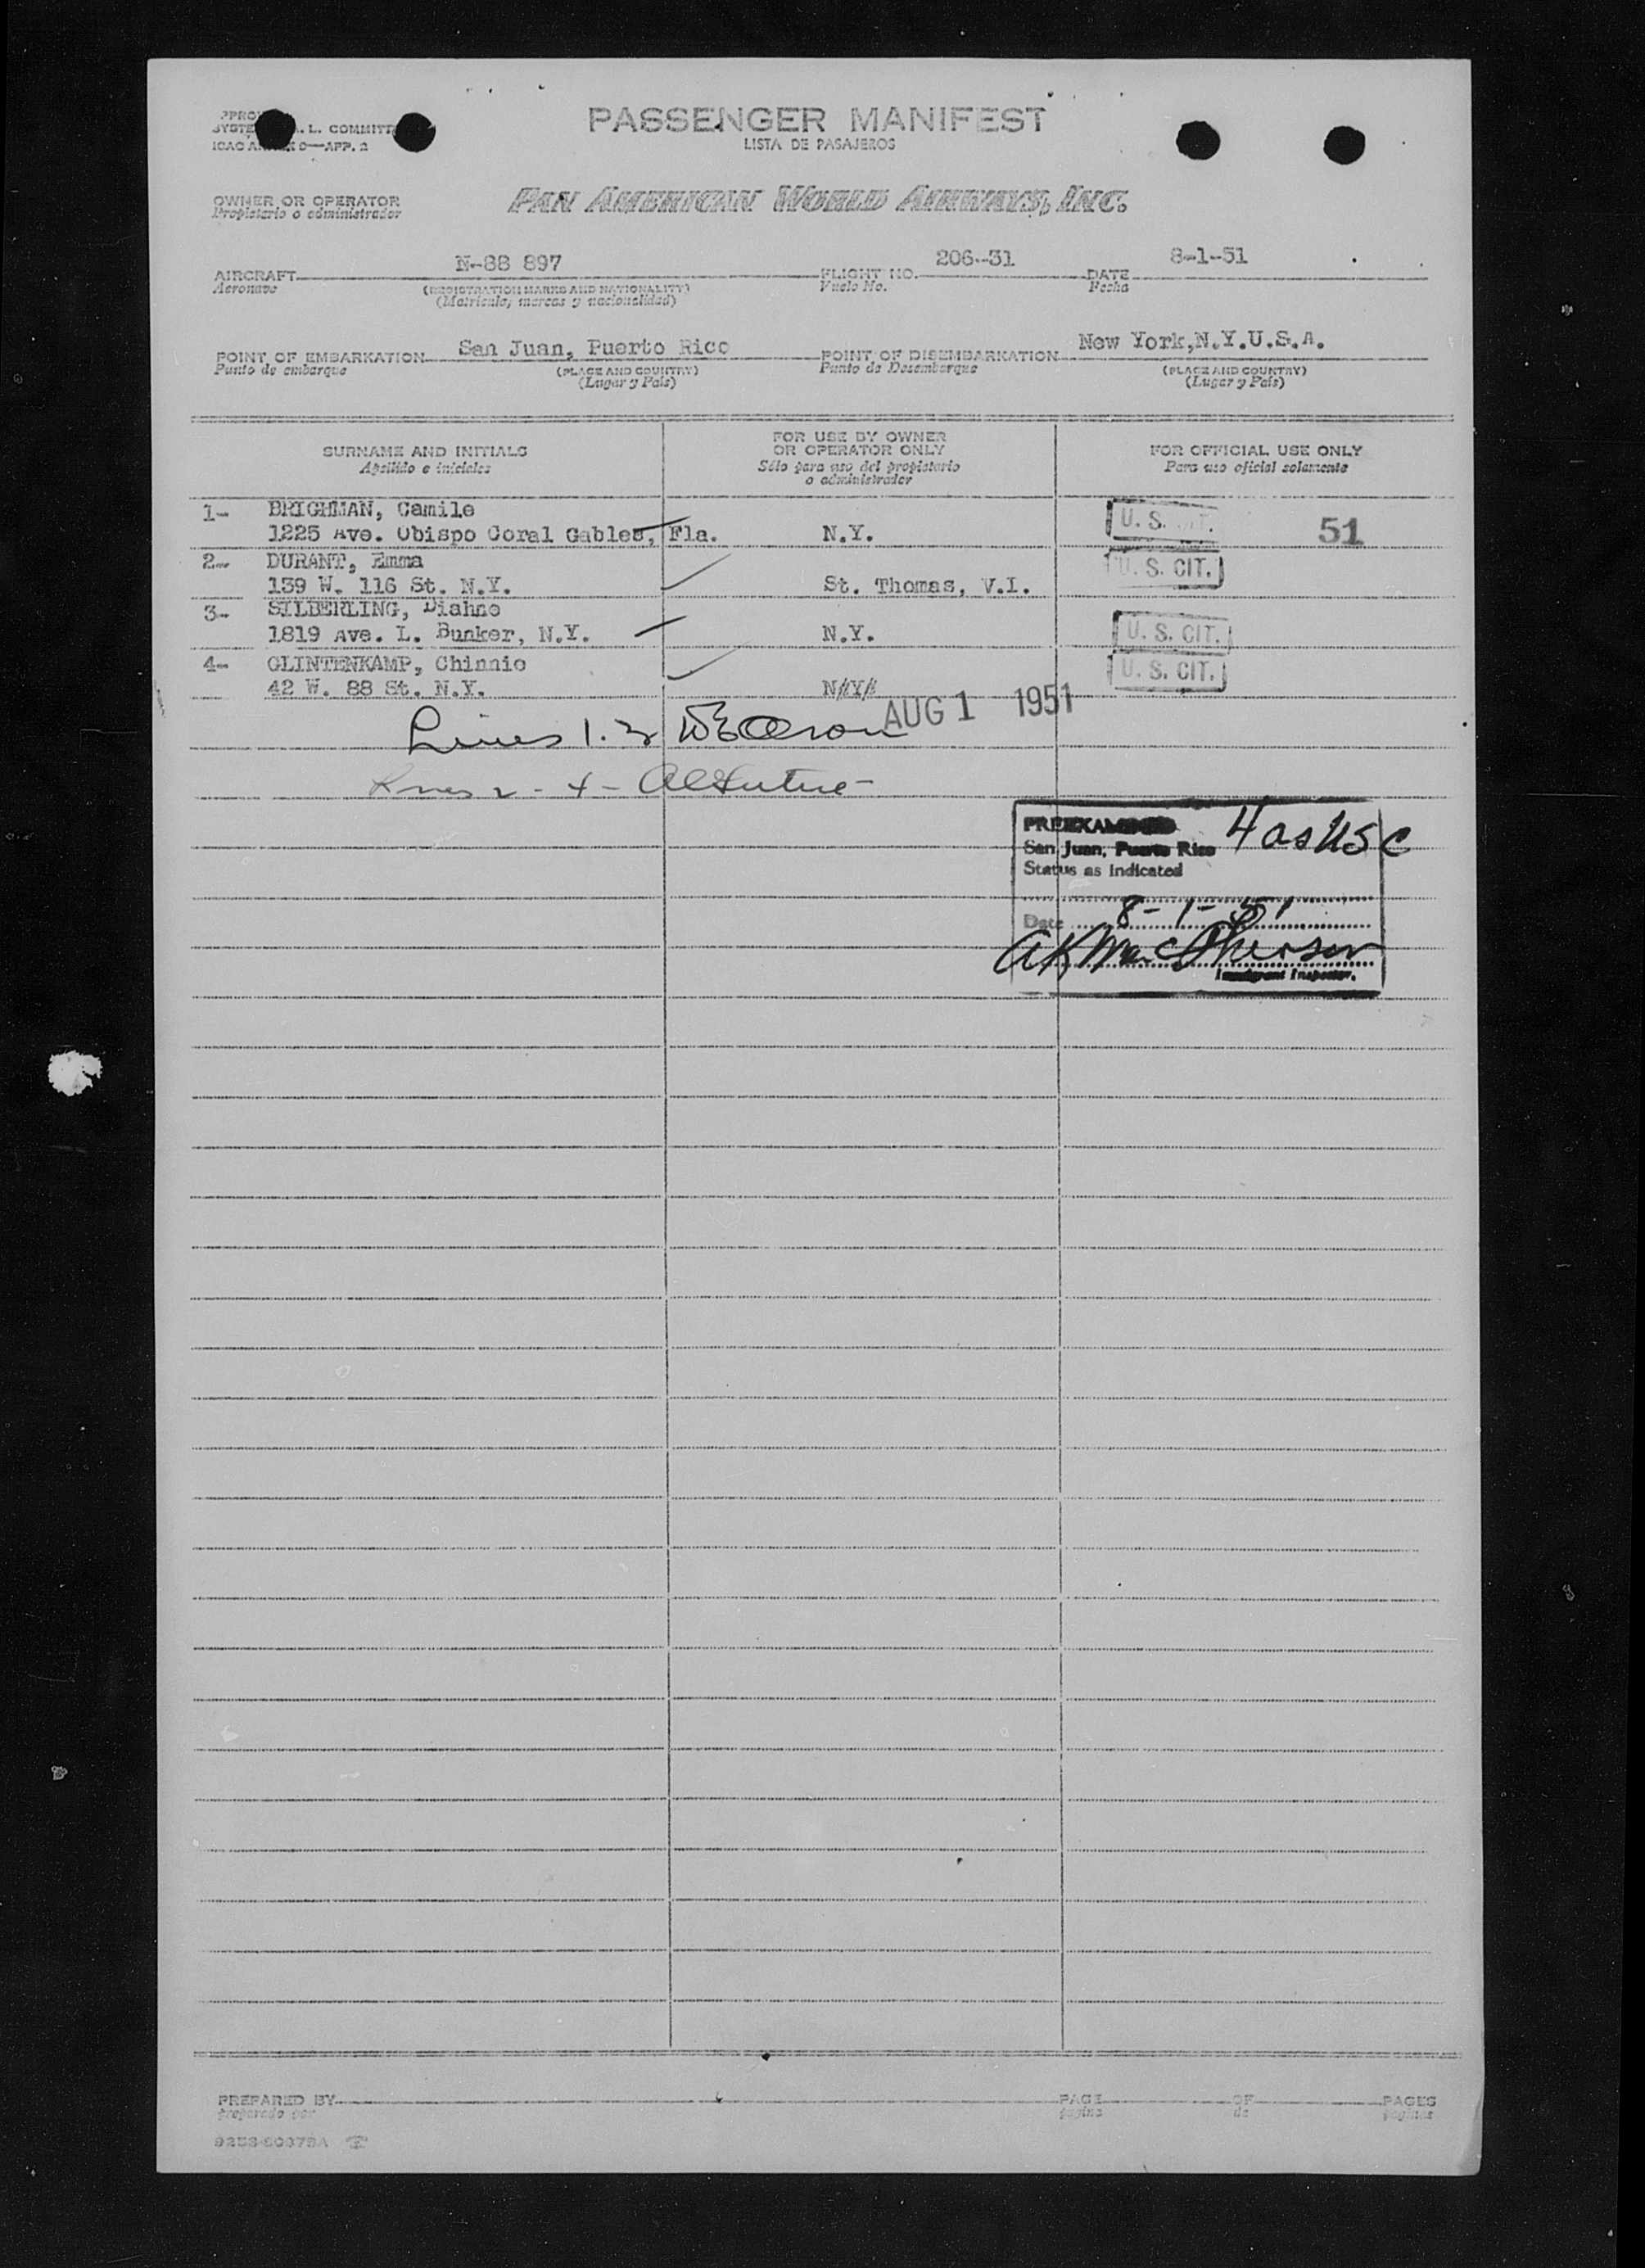 PASSENGER MANIFEST
LISTA DE PASAJEROS
L. COMMITT
ICAO
APP. 2
OWNER OR OPERATOR
Propietario o administrador
PAN AMERICAN WORLD AIRWAYS, INC.
AIRCRAFT N-88 897 FLIGHT NO. 206-31 DATE 8-1-51
Aeronave (REGISTRATION MARKS AND NATIONALITY) Vuelo No. Fecha
(Matrícula, marcas y nacionalidad)
POINT OF EMBARKATION San Juan, Puerto Rico POINT OF DISEMBARKATION New York,N.Y.U.S.A.
Punto de embarque (PLACE AND COUNTRY) Punto de Desembarque (PLACE AND COUNTRY)
(Lugar y País) (Lugar y País)
SURNAME AND INITIALS
Apellido e iniciales
FOR USE BY OWNER
OR OPERATOR ONLY
Sólo para uso del propietario
o administrador
FOR OFFICIAL USE ONLY
Para uso oficial solamente
1- BRIGHMAN, Camile
1225 Ave. Obispo Coral Gables, Fla. N.Y. U. S. 51
2- DURANT, Emma
139 W. 116 St. N.Y. St. Thomas, V.I. U. S. CIT.
3- SILBERLING, Diahne
1819 Ave. L. Bunker, N.Y. N.Y. U. S. CIT.
4- GLINTENKAMP, Chinnie
42 W. 88 St. N.Y. N/Y/ U. S. CIT.
AUG 1 1951
Lines 1.3
Lines 2 - 4 -
PREEXAMINED 4 as USC
San Juan, Puerto Rico
Status as indicated
Date 8-1-51
AK MacPherson
Immigrant Inspector.
PREPARED BY PAGE OF PAGES
preparado por página de páginas